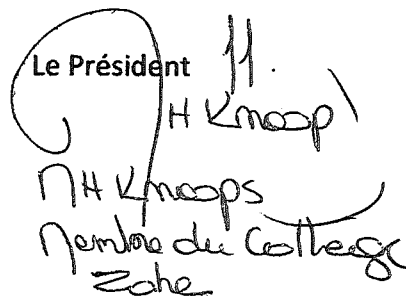 Le Président
H Knoop
MH Knoops
Membre du College
Zone